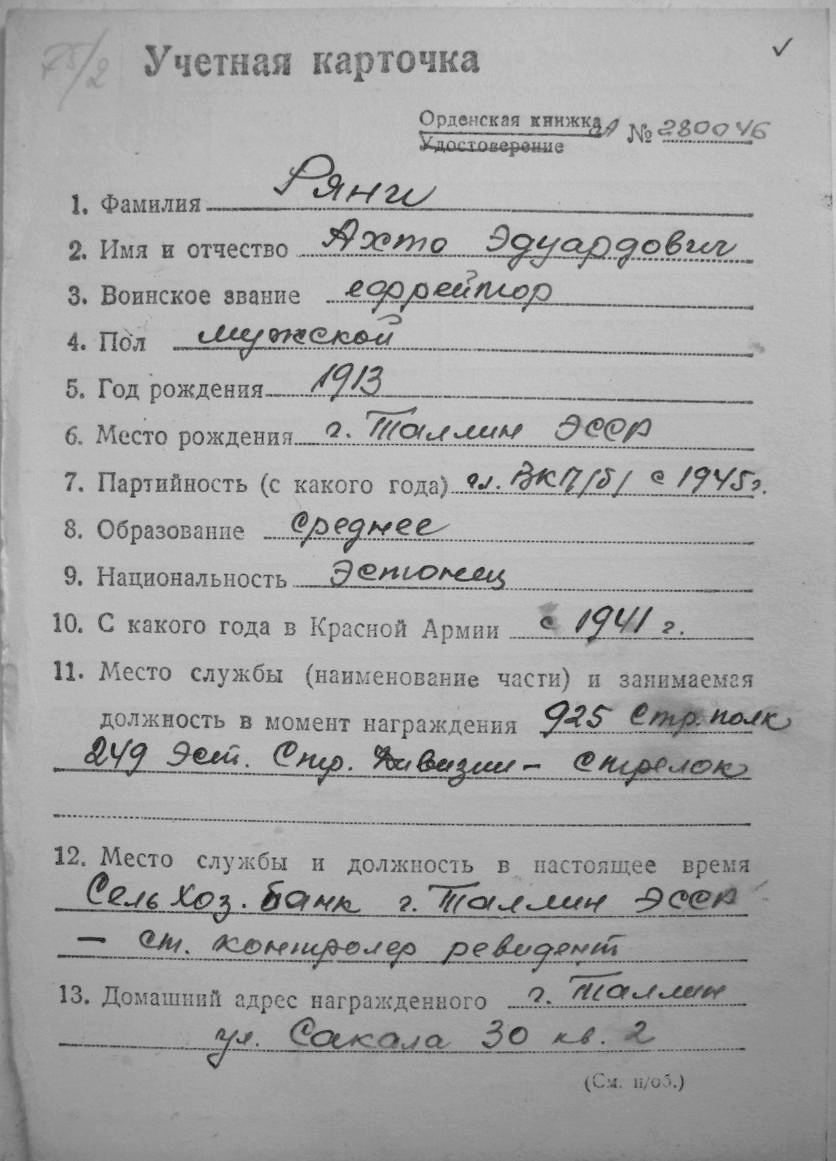 75/2
Учетная карточка
Орденская книжка № 280046
Удостоверение
1. Фамилия Рянги
2. Имя и отчество Ахто Эдуардович
3. Воинское звание ефрейтор
4. Пол мужской
5. Год рождения 1913
6. Место рождения г. Таллин ЭССР
7. Партийность (с какого года) чл. ВКП/б/ с 1945г.
8. Образование среднее
9. Национальность Эстонец
10. С какого года в Красной Армии с 1941 г.
11. Место службы (наименование части) и занимаемая
должность в момент награждения 925 Стр. полк
249 Эст. Стр. Дивизии – Стрелок
12. Место службы и должность в настоящее время
Сель Хоз. Банк г. Таллин ЭССР
– ст. контролер ревидент
13. Домашний адрес награжденного г. Таллин
ул. Сакала 30 кв. 2
(См. н/об.)